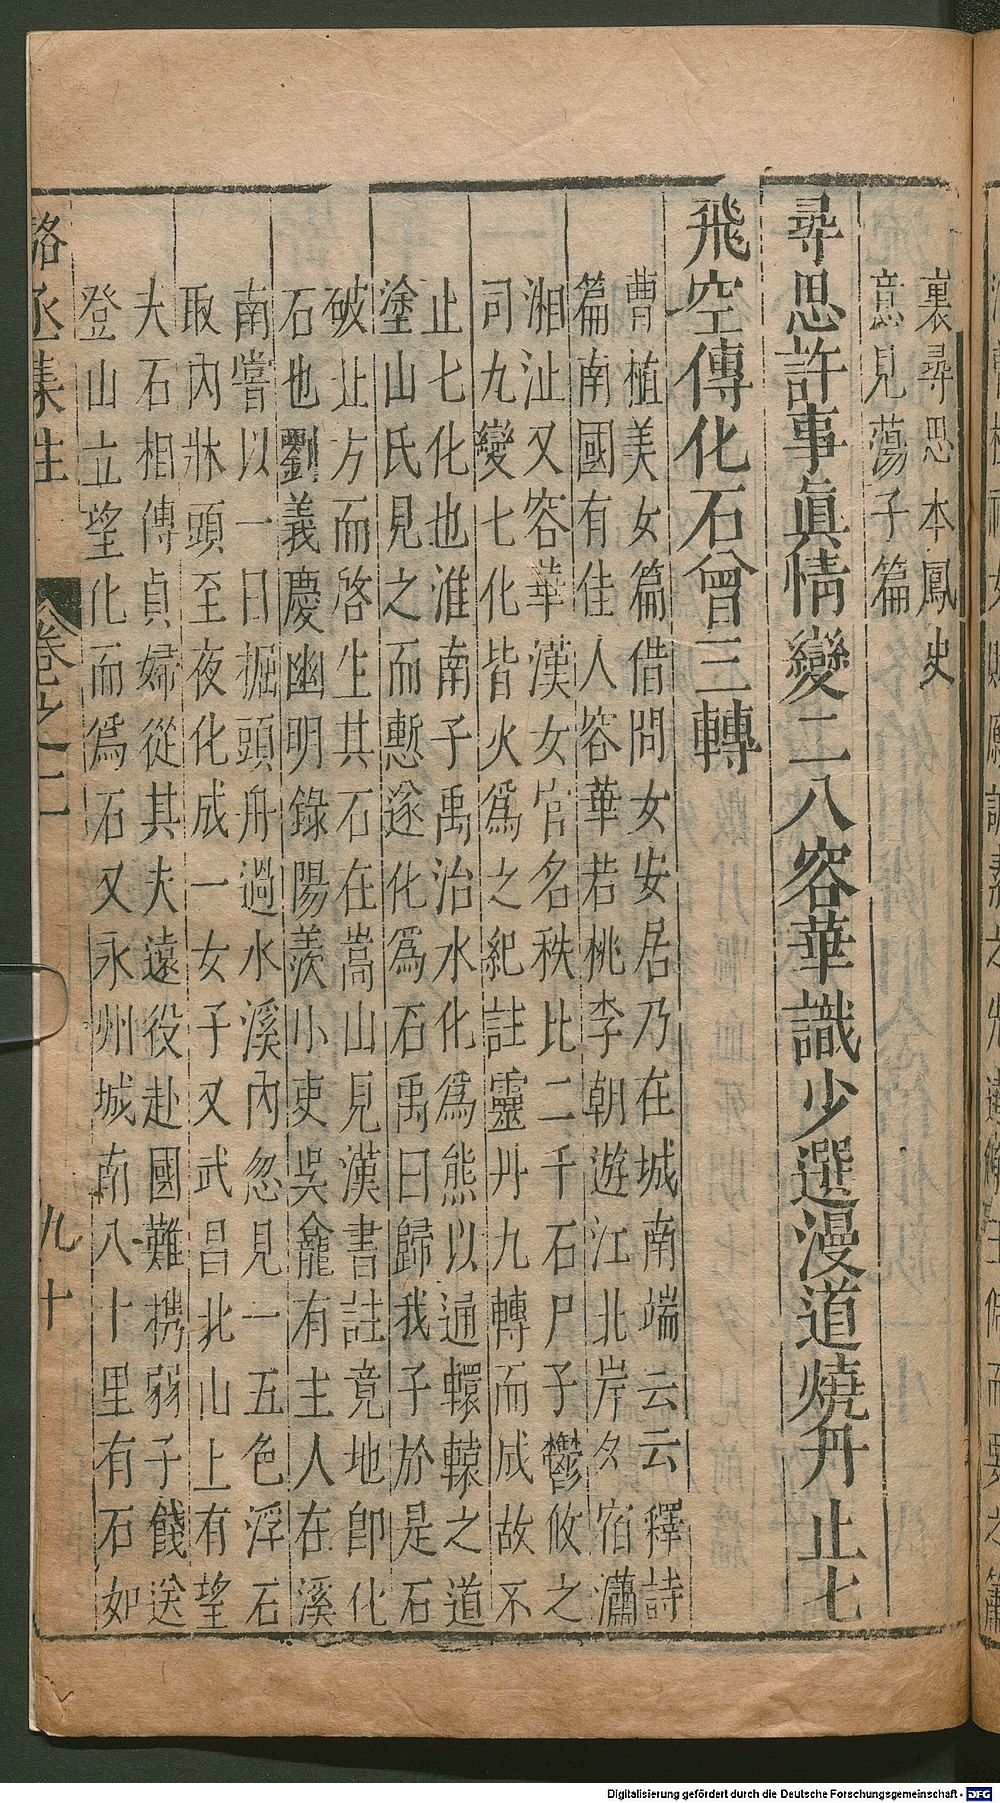 裏尋思本鳳史
意見蕩子篇
尋思許事眞情變二八容華識少選漫道燒丹止七
飛空傳化石曾三轉
曹植美女篇借問女安居乃在城南端云云釋詩
篇南國有佳人容華若桃李朝遊江北岸夕宿瀟
湘沚又容華漢女官名秩比二千石尸子鬱攸之
司九變七化皆火爲之紀註靈丹九轉而成故不
止七化也淮南子禹治水化爲熊以通轘轅之道
塗山氏見之而慙遂化爲石禹曰歸我子於是石
破北方而啓生其石在嵩山見漢書註竟地卽化
石也劉義慶幽明錄陽羨小吏吳龕有主人在溪
南嘗以一日掘頭舟過水溪內忽見一五色浮石
取內牀頭至夜化成一女子又武昌北山上有望
夫石相傳貞婦從其夫遠役赴國難携弱子餞送
登山立望化而爲石又永州城南八十里有石如
駱丞集注 卷之二 九十
Digitalisierung gefördert durch die Deutsche Forschungsgemeinschaft - DFG